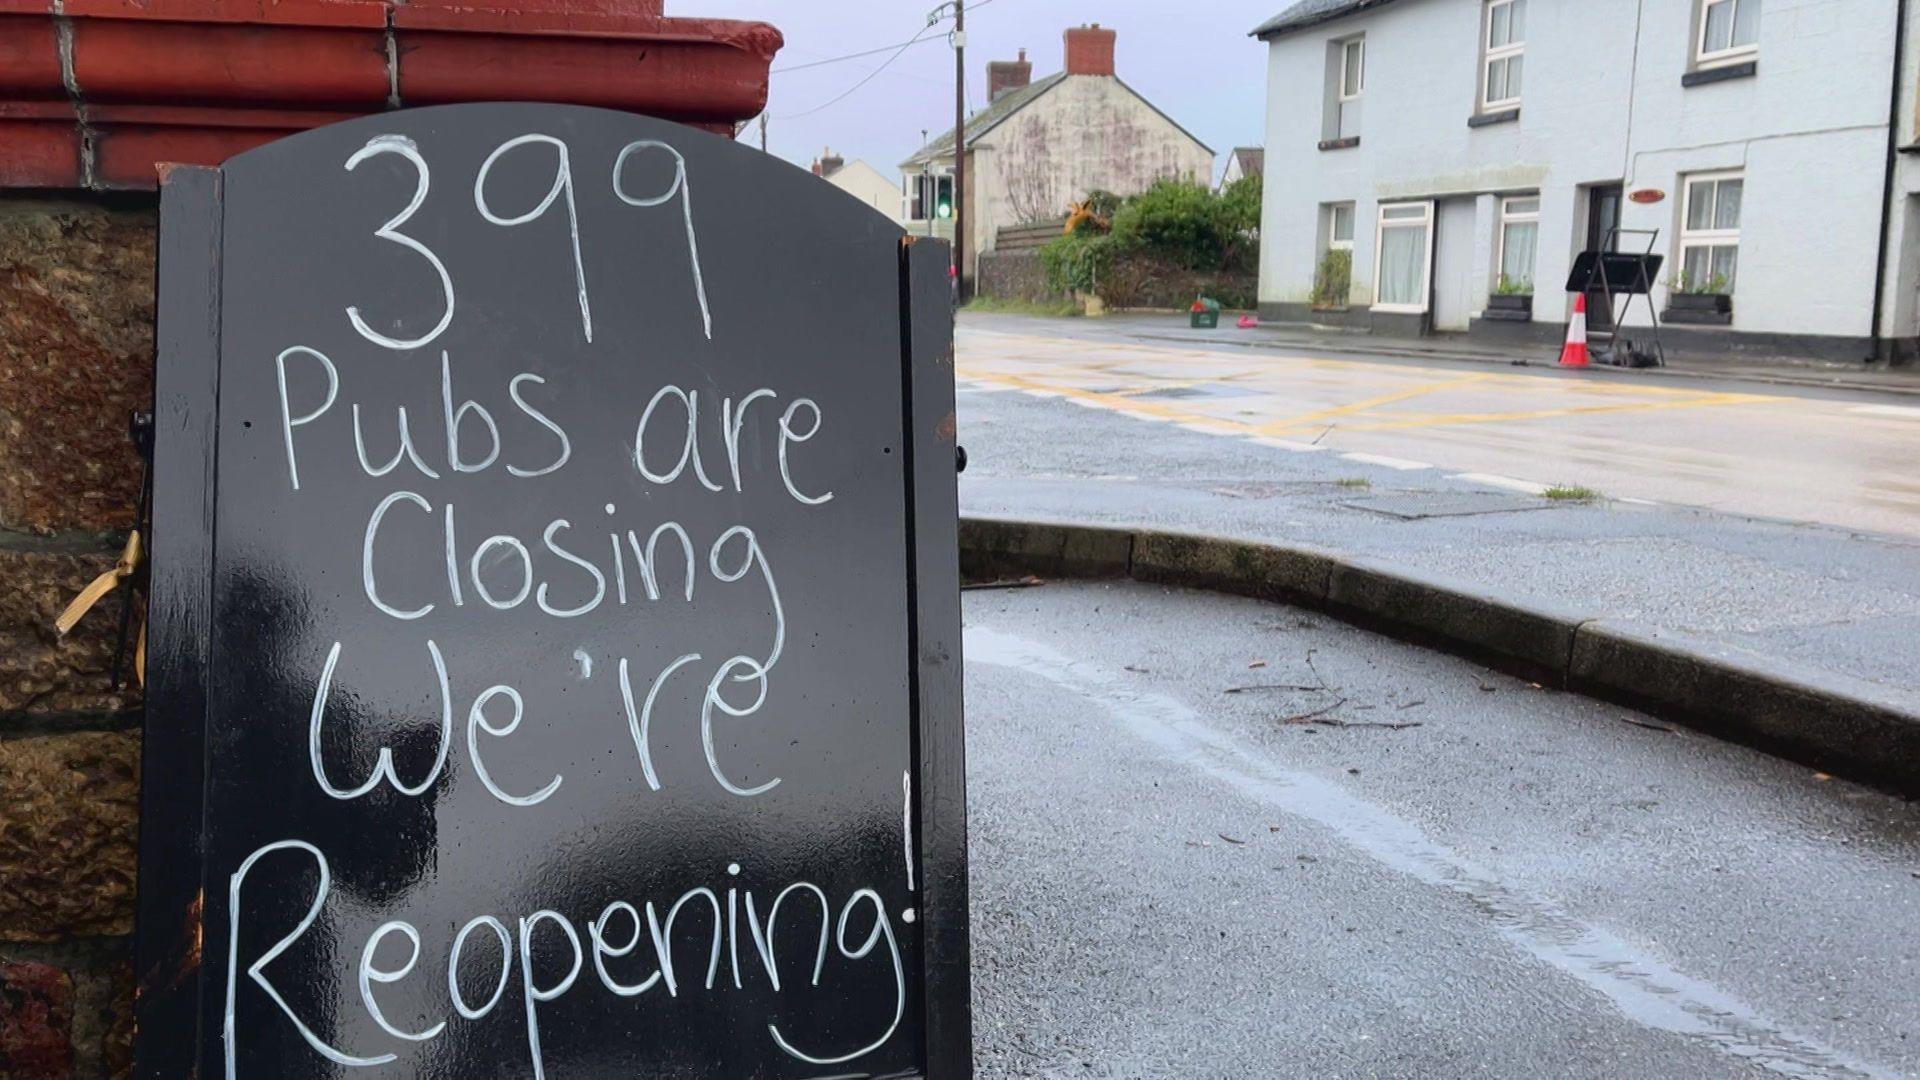 399
Pubs are
Closing
We're
Reopening!